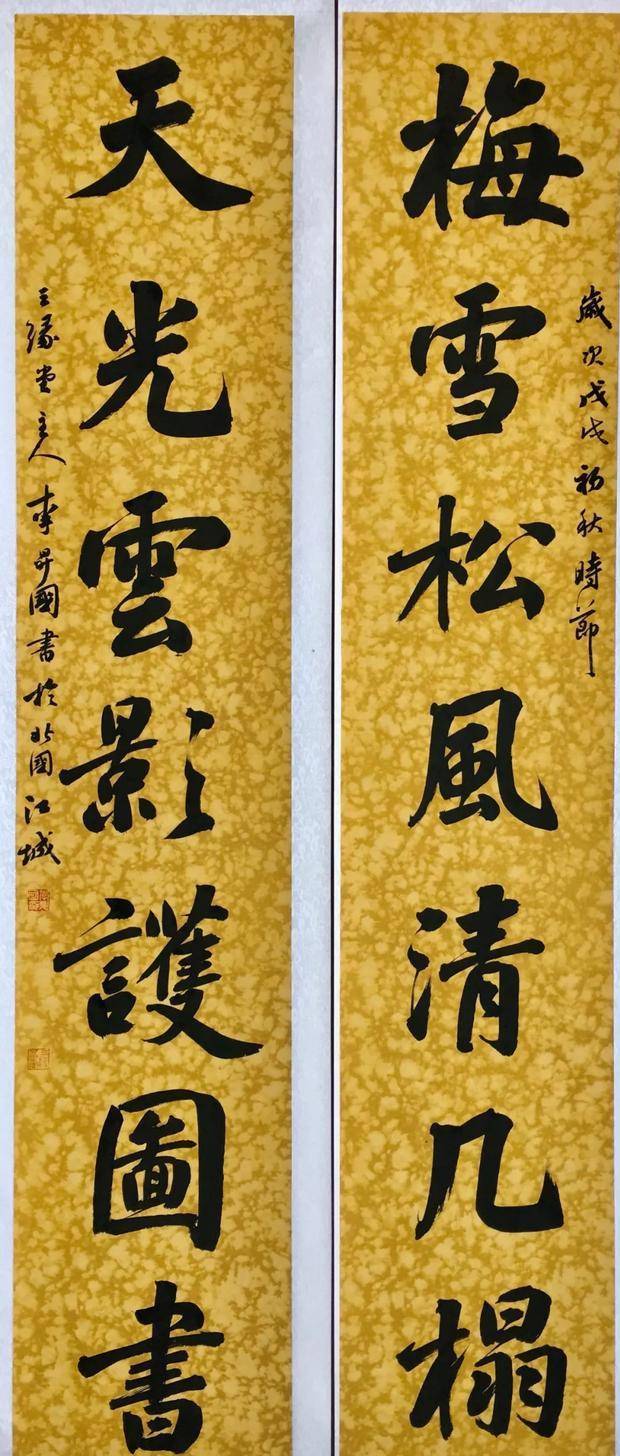 梅雪松風清几榻
歲次戊戌初秋時節
天光雲影護圖書
三緣堂主人李昇國書於北國江城